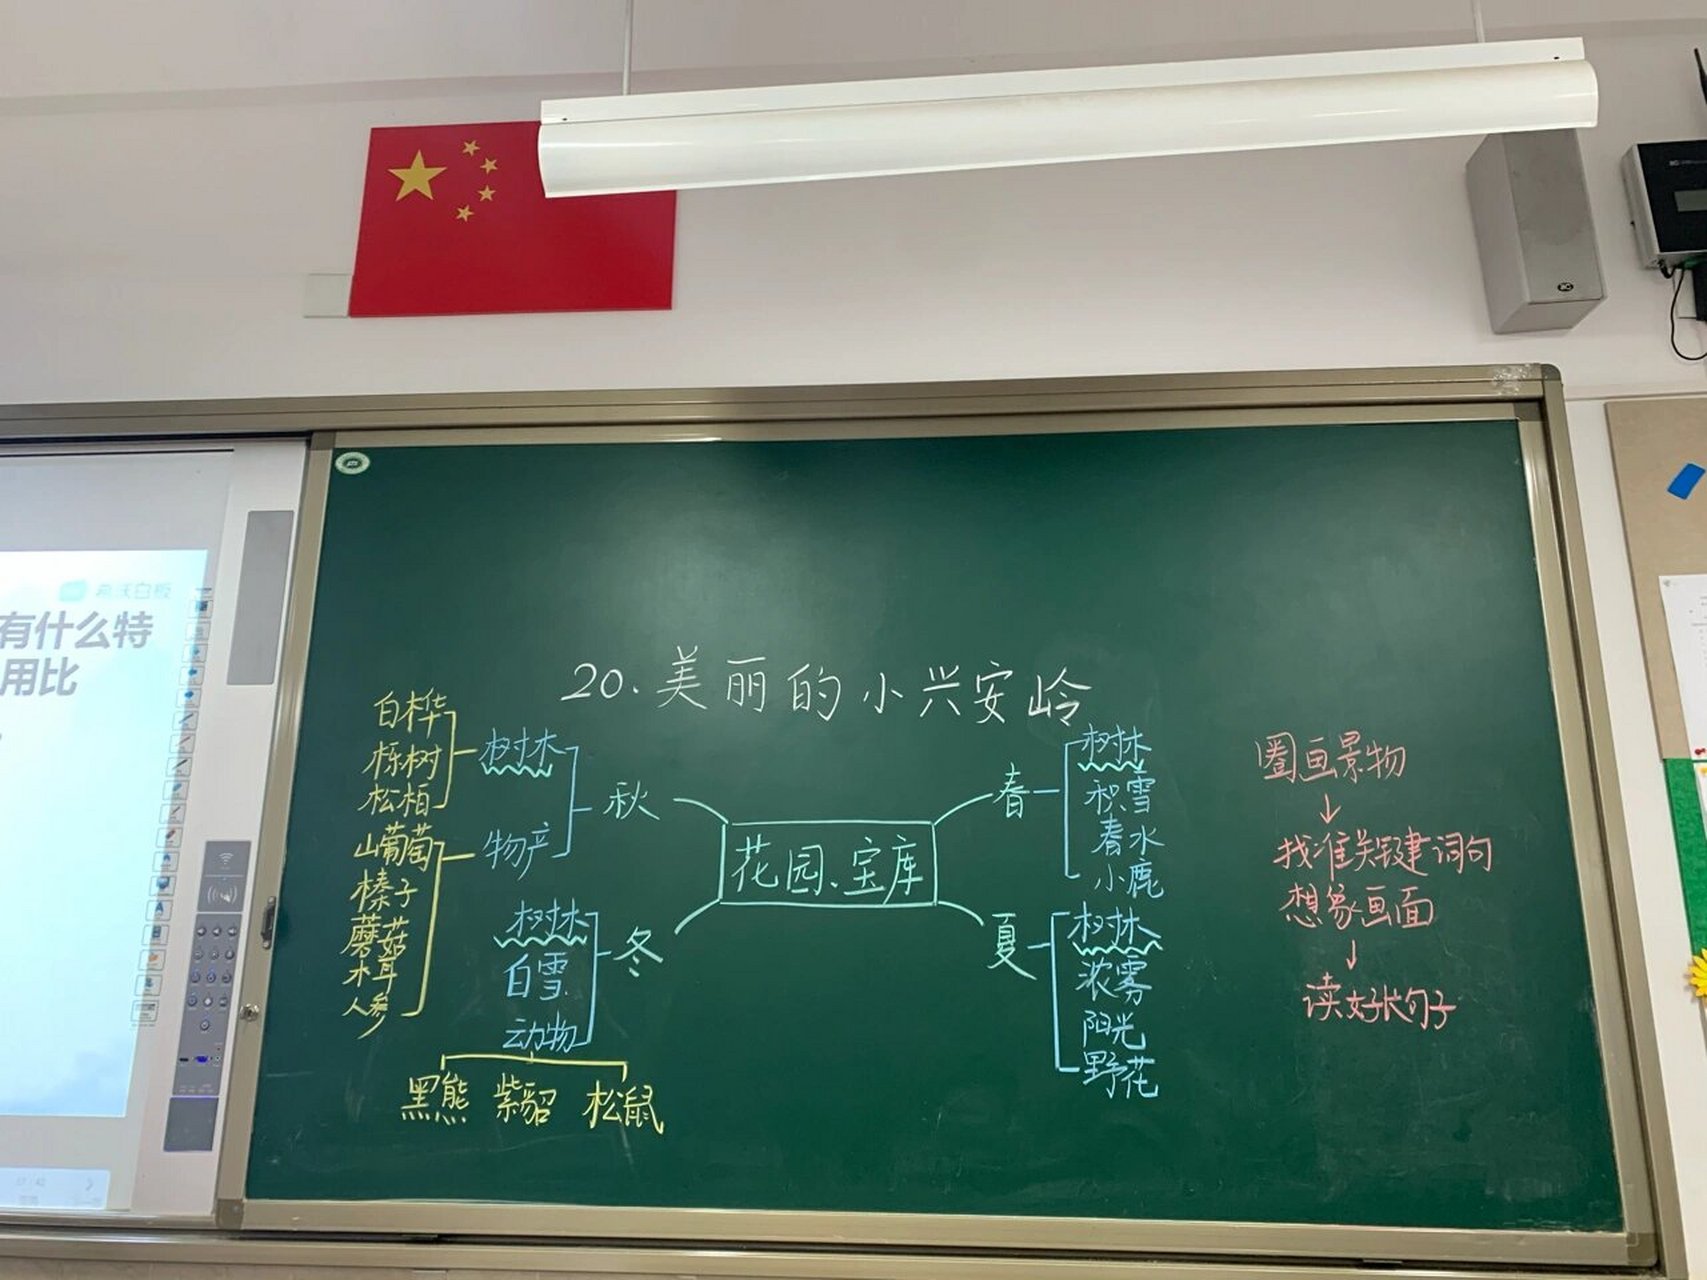 希沃白板
有什么特
用比
20.美丽的小兴安岭
花园、宝库
春
树林
积雪
春水
小鹿
夏
树林
浓雾
阳光
野花
秋
树林
白桦
栎树
松柏
物产
山葡萄
榛子
蘑菇
木耳
人参
冬
树林
白雪
动物
黑熊 紫貂 松鼠
圈画景物
↓
找准关键词句
想象画面
↓
读好长句子